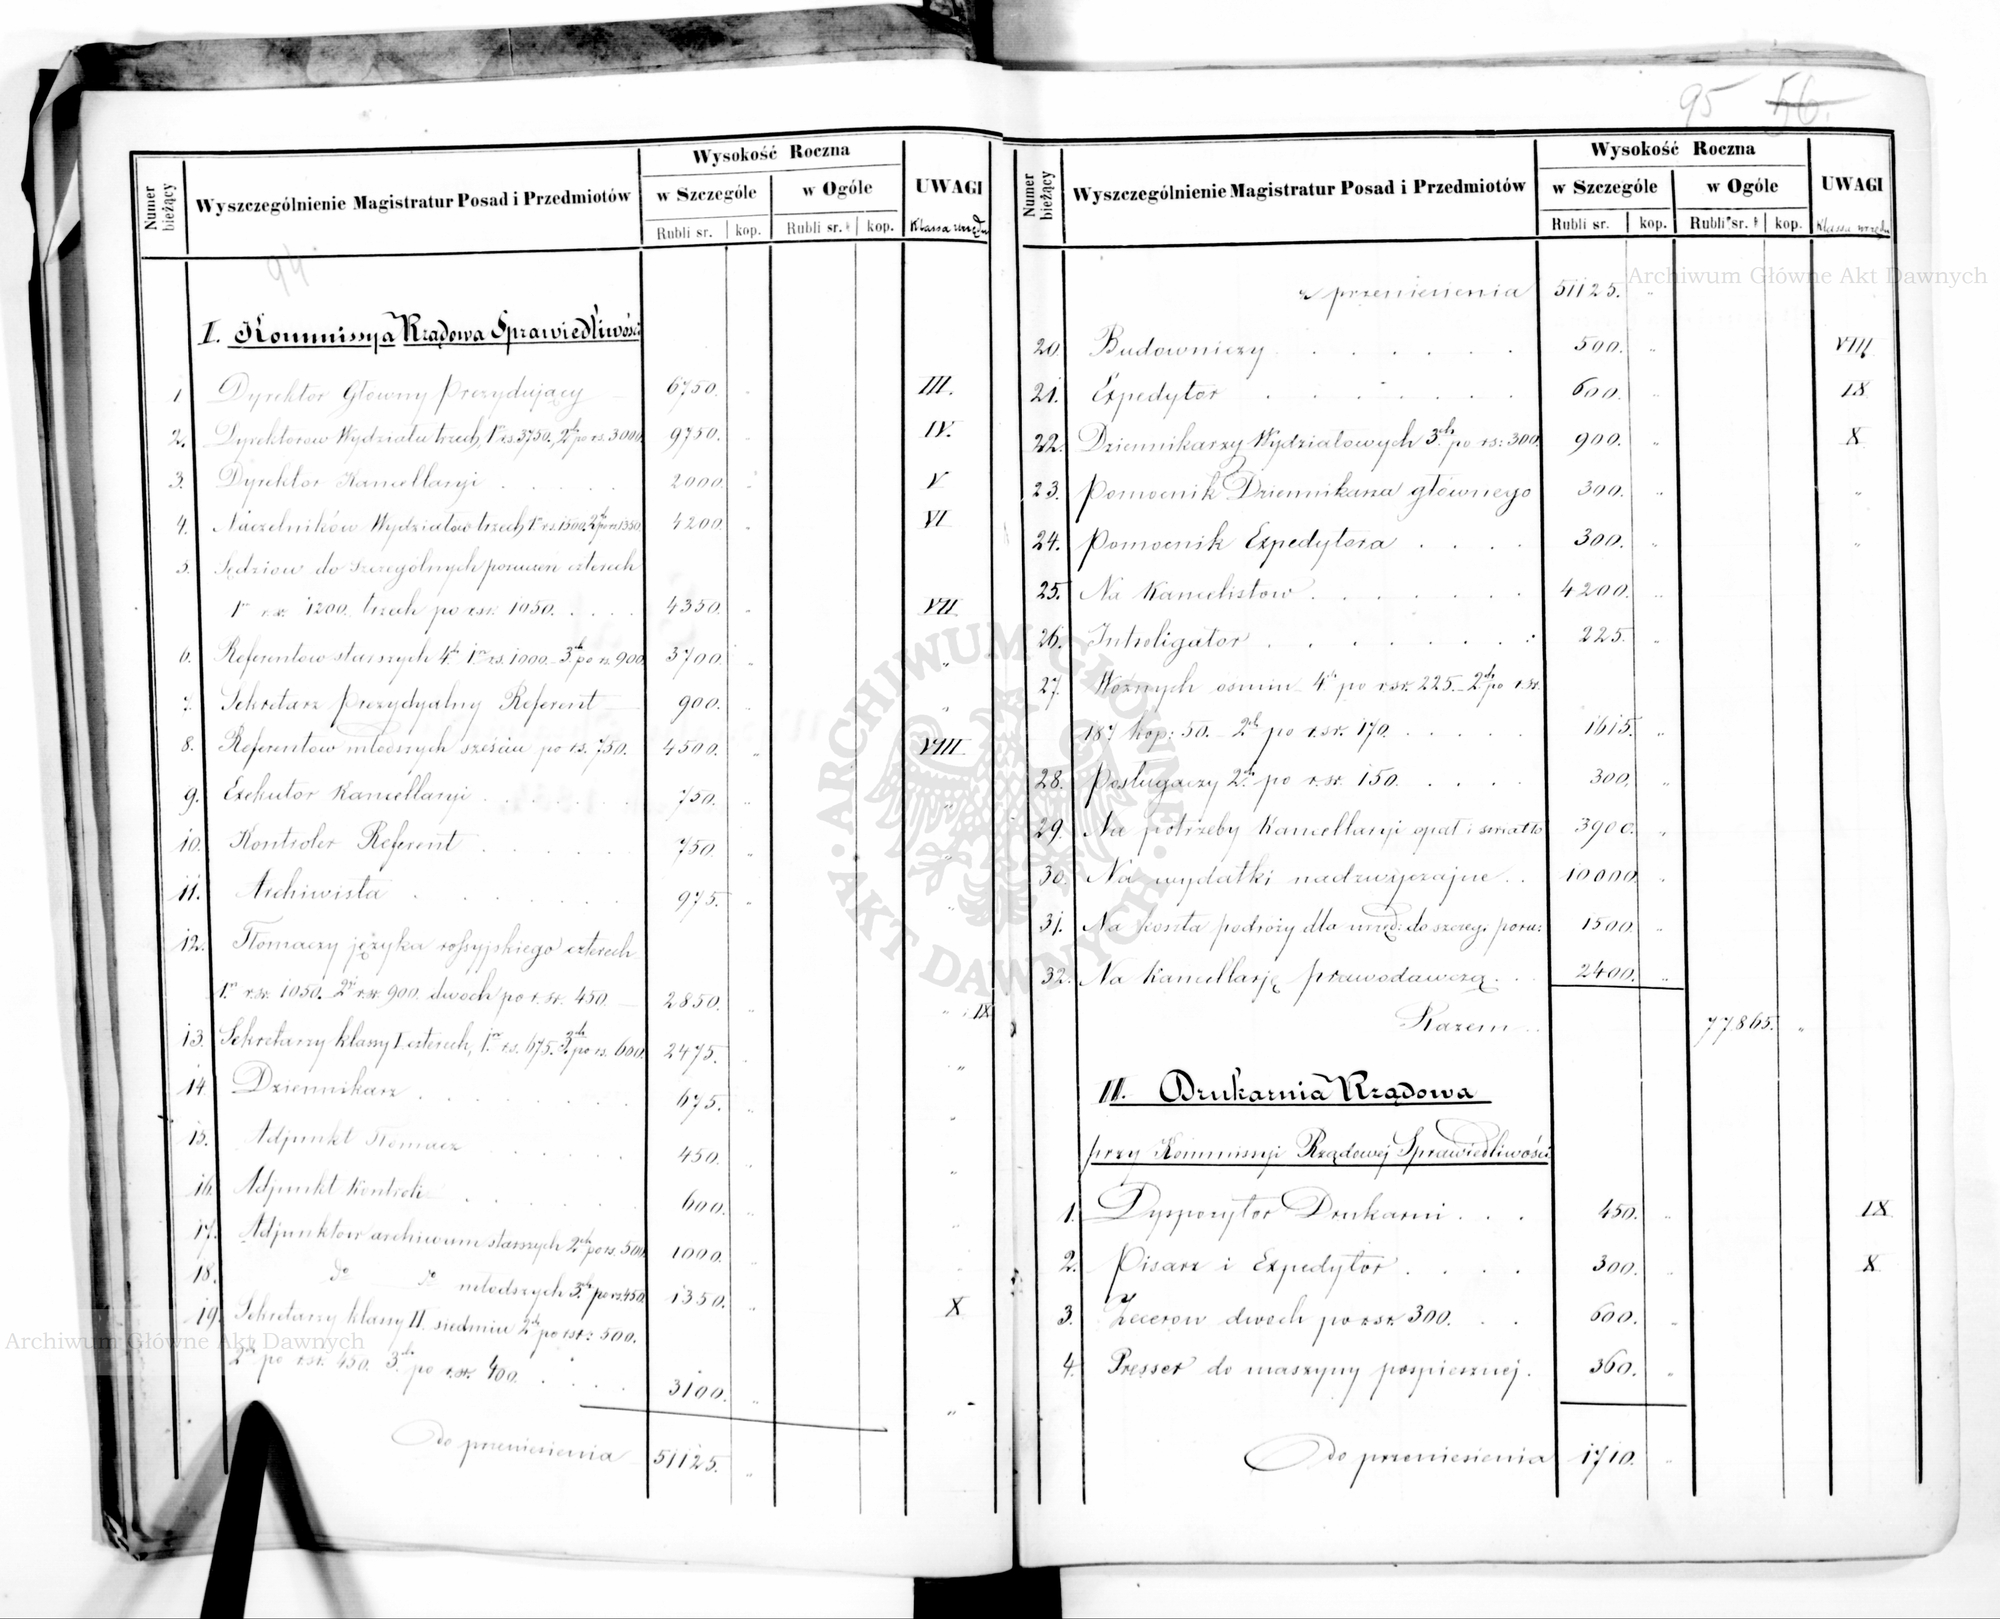 95 56.
Numer bieżący
Wyszczególnienie Magistratur Posad i Przedmiotów
Wysokość Roczna
w Szczególe
w Ogóle
UWAGI
Rubli sr. kop. Rubli sr. kop. Klassa urzędu
94
I. Kommissya Rządowa Sprawiedliwości
1 Dyrektor Główny Prezydujący 6750. „ III.
2. Dyrektorów Wydziału trzech, 1n rs. 3750, 2ch po rs. 3000. 9750. „ IV.
3. Dyrektor Kancellaryi . . . . . 2000. „ V
4. Naczelników Wydziałów trzech 1n rs. 1500. 2ch po rs. 1350. 4200. „ VI
5. Sędziów do szczególnych poruczeń czterech
1n rsr. 1200. trzech po rsr. 1050. . . . . 4350. „ VII
6. Referentów starszych 4ch 1n rs. 1000. 3ch po rs. 900. 3700. „ „
7. Sekretarz Prezydyalny Referent 900. „ „
8. Referentów młodszych sześciu po rs. 750. 4500. „ VIII
9. Exekutor Kancellaryi . . . . . 750. „ „
10. Kontroler Referent . . . . . 750. „ „
11. Archiwista . . . . . . 975. „ „
12. Tłomaczy języka rossyjskiego czterech
1n rsr. 1050. 2n rsr. 900. dwóch po r. sr. 450. 2850. „ „ IX
13. Sekretarzy klassy I czterech, 1n rs. 675. 3ch po rs. 600. 2475. „ „
14. Dziennikarz . . . . . . . 675. „ „
15. Adjunkt Tłomacz . . . . . 450. „ „
16. Adjunkt Kontroli . . . . . 600. „
17. Adjunktów archiwum starszych 2ch po rs. 500. 1000. „
18. do do młodszych 3ch po rs. 450. 1350. „ X
19. Sekretarzy klassy II. siedmiu 2ch po rsr: 500.
2ch po rsr. 450. 3ch po rsr. 400. . . . . 3100. „ „
Do przeniesienia 51125. „
Numer bieżący
Wyszczególnienie Magistratur Posad i Przedmiotów
Wysokość Roczna
w Szczególe
w Ogóle
UWAGI
Rubli sr. kop. Rubli sr. kop. Klassa urzędu
z przeniesienia 51125. „
20. Budowniczy . . . . . . 500. „ VIII
21. Expedytor . . . . . . 600. „ IX
22. Dziennikarzy Wydziałowych 3ch po rs: 300. 900. „ X
23. Pomocnik Dziennikarza głównego 300. „ „
24. Pomocnik Expedytora . . . . 300. „ „
25. Na Kancelistów . . . . . . 4200. „
26. Introligator . . . . . . 225. „
27. Woźnych ośmiu 4ch po rsr. 225. 2ch po rsr.
187 kop: 50. 2ch po r. sr. 170. . . . . . 1615. „
28. Posługaczy 2ch po r. sr. 150. . . . . 300. „
29. Na potrzeby Kancellaryi opał i światło 3900. „
30. Na wydatki nadzwyczajne . . 10000. „
31. Na koszta podróży dla urzęd: do szczeg: poru: 1500. „
32. Na Kancellarję prawodawczą . . 2400. „
Razem . . 77865. „
II. Drukarnia Rządowa
przy Kommissyi Rządowej Sprawiedliwości
1. Dyspozytor Drukarni . . . 450. „ IX
2. Pisarz i Expedytor . . . . 300. „ X
3. Zecerów dwóch po rsr. 300. . . 600. „
4. Presser do maszyny pospiesznej . 360. „
Do przeniesienia 1710. „
Archiwum Główne Akt Dawnych
Archiwum Główne Akt Dawnych
ARCHIWUM GŁÓWNE · AKT DAWNYCH ·